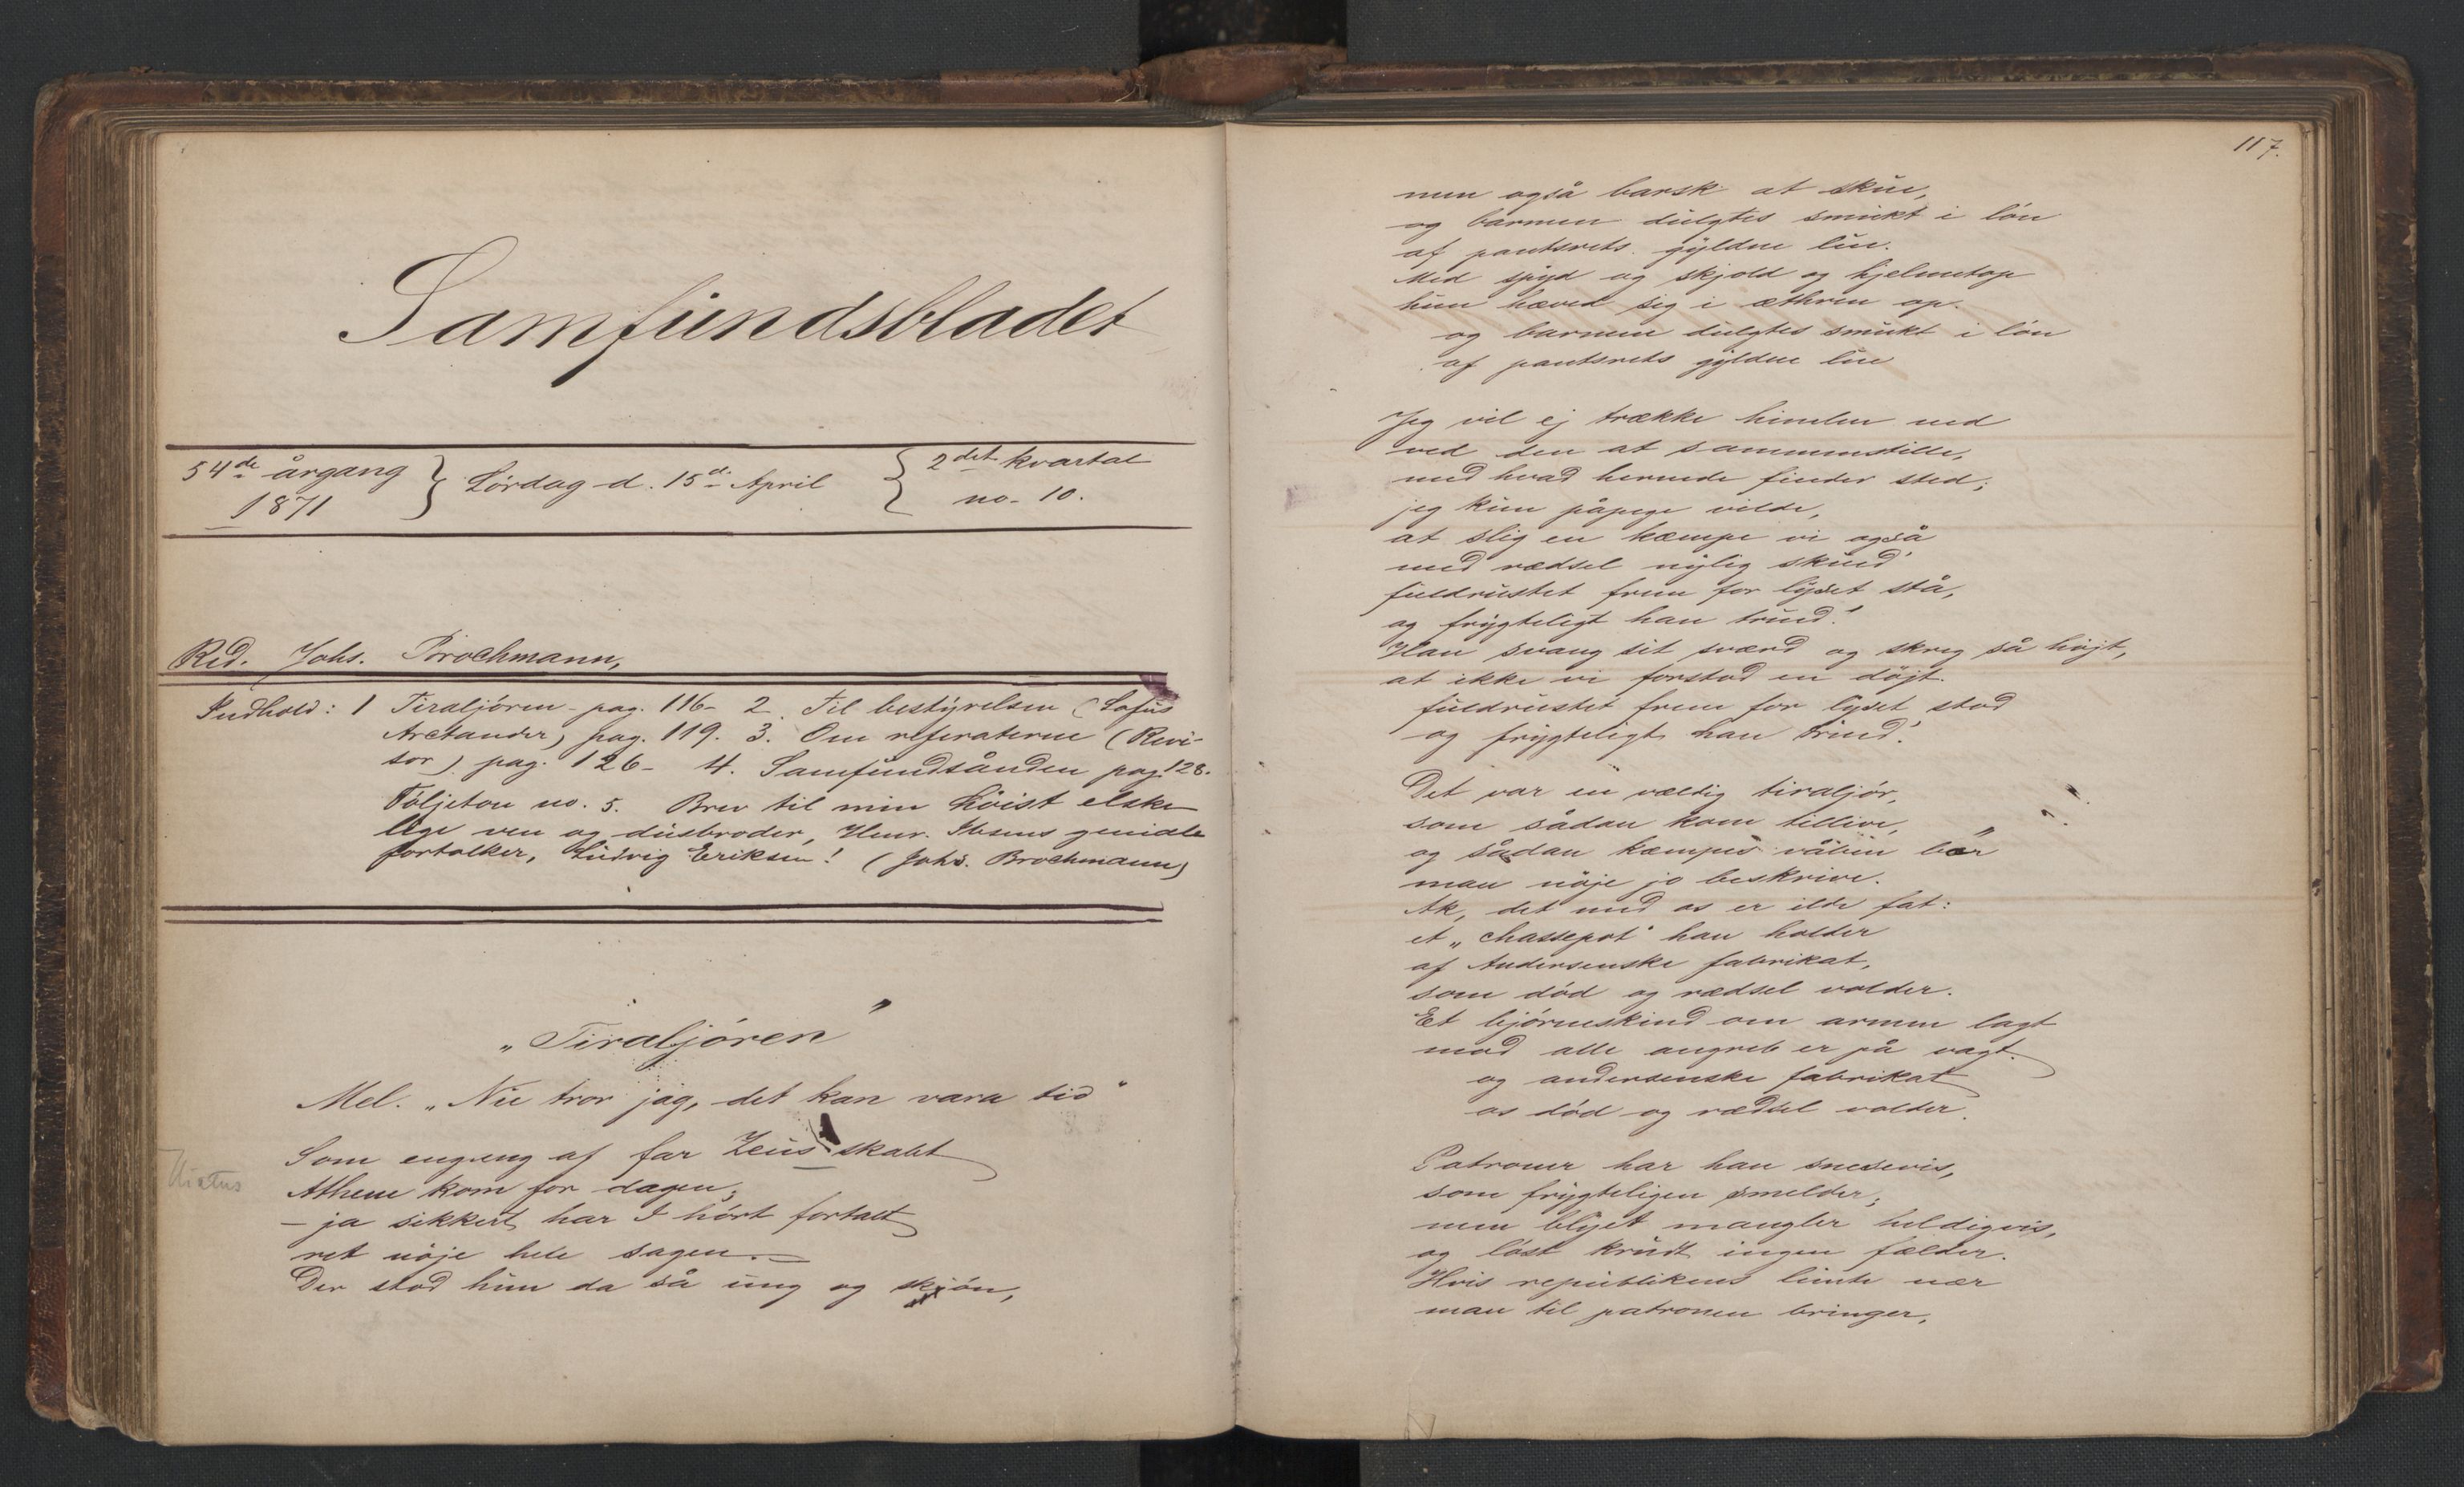 Samfundsbladet
54de årgang
1871
Lördag d. 15de April
2det kvartal
no. 10.
Red. Johs. Brochmann,
Indhold: 1 Tiraljören - pag. 116 - 2. Til bestyrelsen (Sofus
Arctander) pag. 119. 3. Om referaterne (Revi-
sor) pag. 126 - 4. Samfundsånden pag. 128.
Följeton no. 5. Brev til min höist elske
lige ven og dusbroder, Henr. Ibsens geniale
fortolker, Ludvig Eriksen! (Johs. Brochmann)
„Tiraljören”
Mel. „Nu tror jag, det kan vara tid”
Som engang af far Zeus skabt
Hiatus
Athene kom for dagen,
– ja sikkert har I hört fortalt
ret nöje hele sagen. –
Der stod hun da så ung og skjön,
117.
men også barsk at skue,
og barmen dulgtes smukt i lön
af pantsrets gyldne lue.
Med spyd og skjold og hjelmetop
hun hæved sig i æthren op.
og barmen dulgtes smukt i lön
af pantsrets gyldne lue
Jeg vil ej trække himlen ned
ved den at sammenstille,
med hvad hernede finder sted;
jeg kun påpege vilde,
at slig en kæmpe vi også
med rædsel nylig skued'
fuldrustet frem for lyset stå,
og frygteligt han trued'.
Han svang sit sværd og skreg så höjt,
at ikke vi forstod en döjt.
fuldrustet frem for lyset stod
og frygteligt han trued'.
Det var en vældig tiraljör,
som sådan kom tillive,
og sådan kæmpes våben bær
man nöje jo beskrive.
Ak, det med os er ilde fat:
et „chassepot” han holder
af Andersenske fabrikat,
som död og rædsel volder.
Et björneskind om armen lagt
mod alle angreb er på vagt.
og andersenske fabrikat
os död og rædsel volder.
Patroner har han snesevis,
som frygteligen smelder;
men blyet mangler heldigvis,
og löst krudt ingen fælder.
Hvis republikens lunte nær
man til patronen bringer,